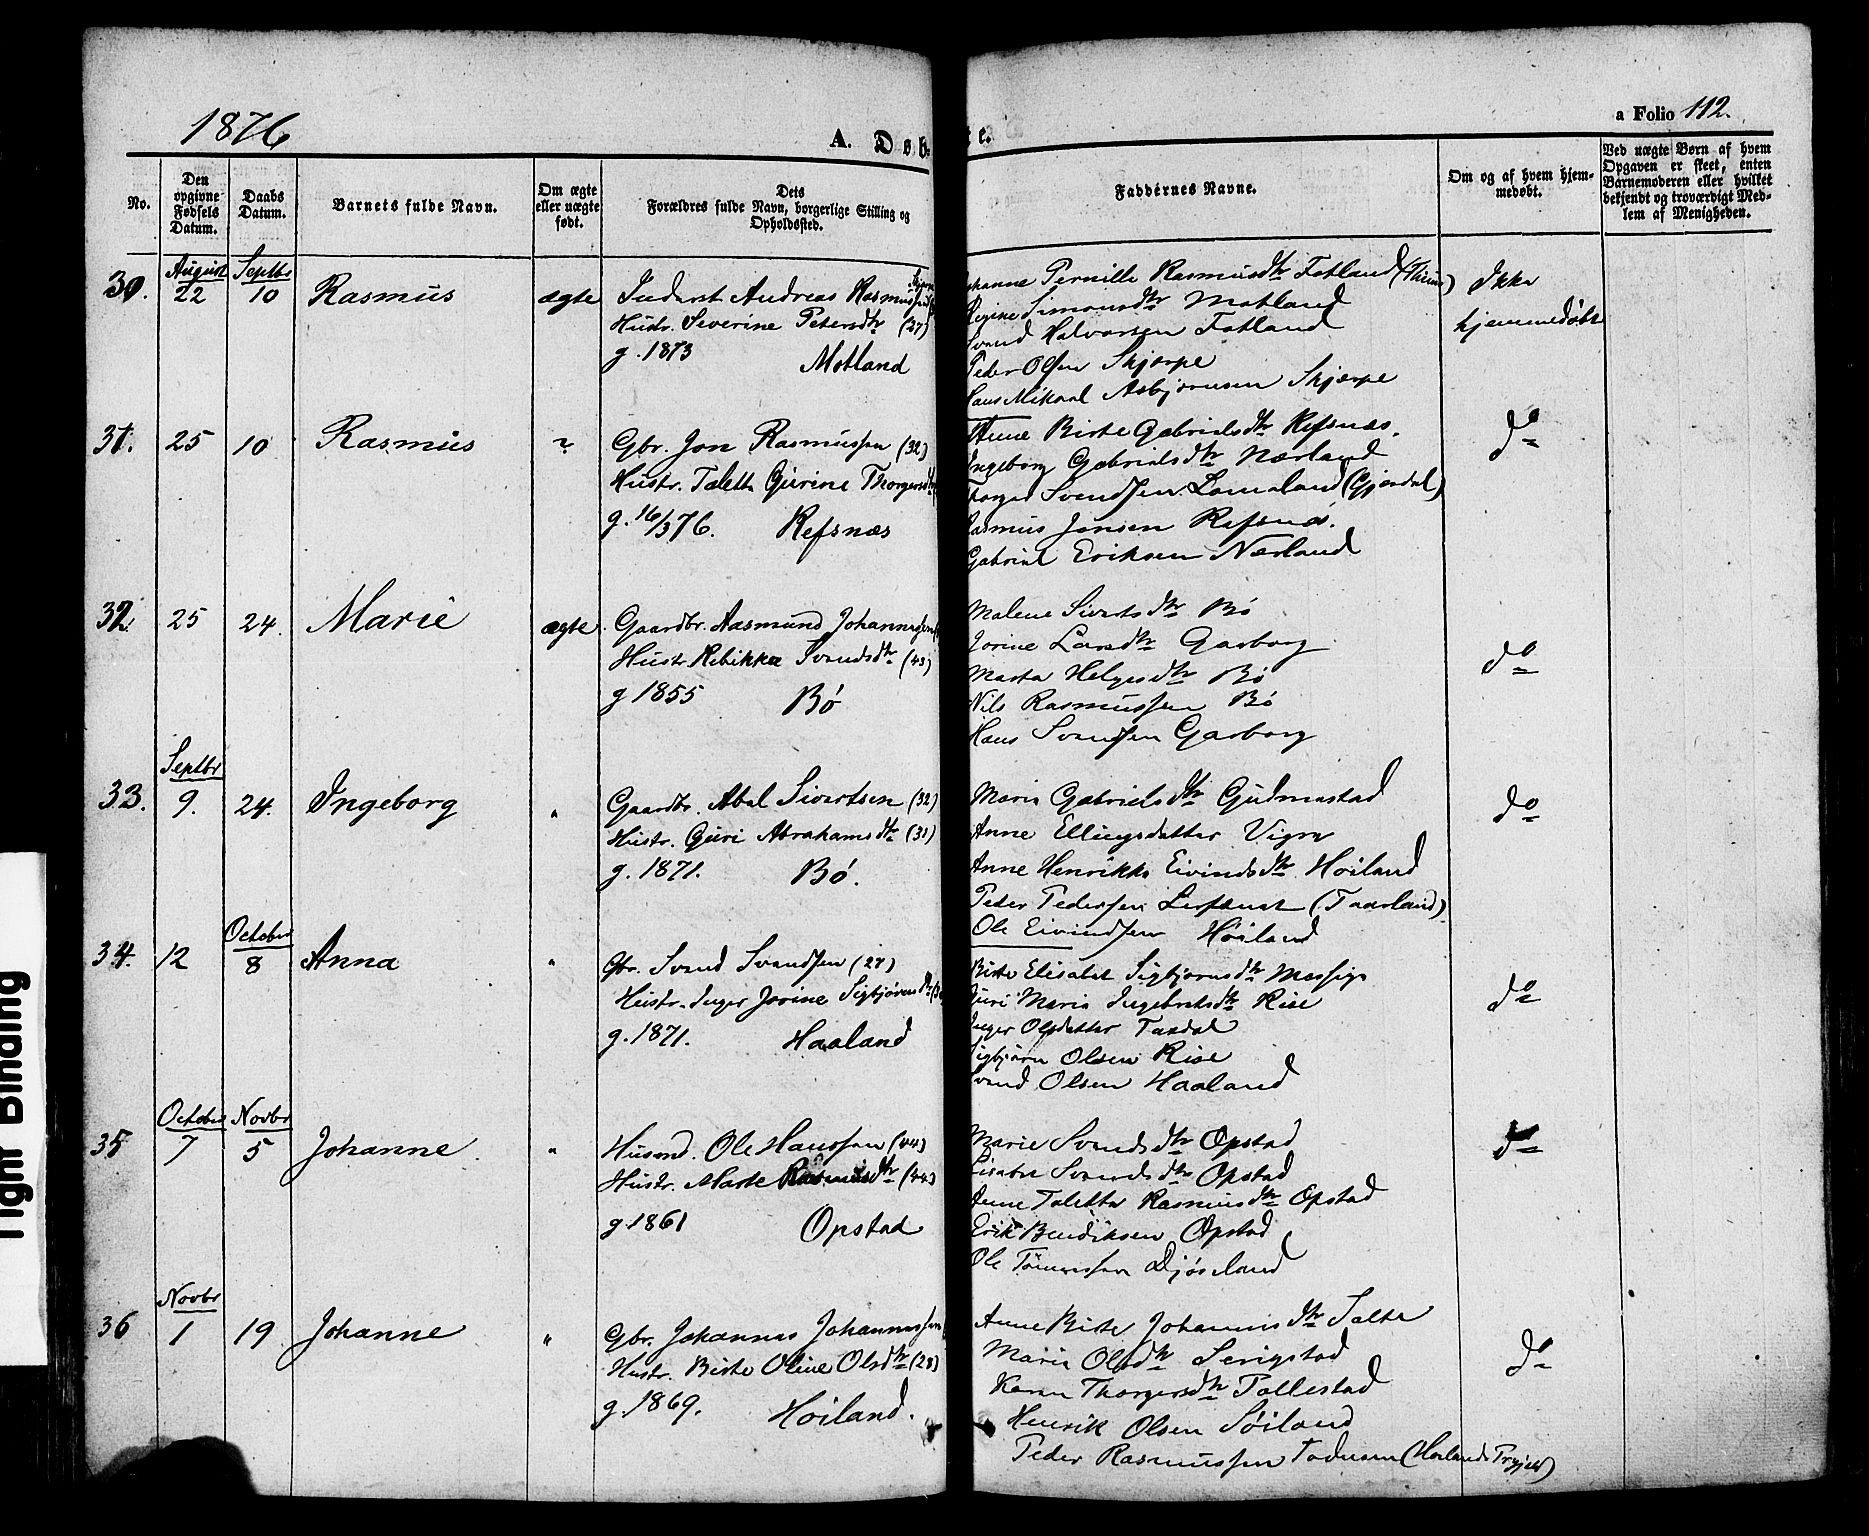 1876
A. Døb- te.
a Folio 112.
No.
Den opgivne Fødsels Datum.
Daabs Datum.
Barnets fulde Navn.
Om ægte eller uægte født.
Dets Forældres fulde Navn, borgerlige Stilling og Opholdssted.
Faddernes Navne.
Om og af hvem hjemmedøbt.
Ved uægte Børn af hvem Opgaven er skeet, enten Barnemoderen eller hvilket bekjendt og troværdigt Medlem af Menigheden.
August Septbr
30. 22 10 Rasmus ægte Inderst Andreas Rasmussen
Hustr. Severine Petersdtr (27)
g. 1873 Motland
Johanne Pernille Rasmusdtr Fotland (Thime)
Regine Simonsdtr Motland
Svend Halvorsen Fotland
Peder Olsen Skjærpe
Hans Mikael Asbjørnsen Skjærpe
Ikke
hjemmedøbt
31. 25 10 Rasmus " Gbr. Jon Rasmussen (32)
Hustr. Taletta Gurine Thorgersdtr
g. 16/3 76. Refsnæs
Anne Birte Gabrielsdtr Refsnæs.
Ingeborg Gabrielsdtr Nærland
Svendsen Lomeland (Gjesdal)
Rasmus Jonsen Refsnæs.
Gabriel Eriksen Nærland
do
32. 25 24. Marie ægte Gaardbr. Aasmund Johannessen
Hustr Rebikka Svendsdtr (43)
g 1855 Bø
Malene Sivertsdtr Bø
Jorine Larsdtr Garborg
Marta Helgesdtr Bø
Nils Rasmussen Bø
Hans Svendsen Garborg
do
Septbr
33. 9. 24. Ingeborg " Gaardbr. Abel Sivertsen (32)
Hustr. Guri Abrahamsdtr (31)
g. 1871. Bø.
Maria Gabrielsdtr Gudmestad
Anne Ellingsdatter Vigre
Anne Henrikke Eivindsdtr Høiland
Peder Pedersen (Taarland)
Ole Eivindsen Høiland
do
October
34. 12 8 Anna " Gbr. Svend Svendsen (27)
Hustr. Inger Jorine Sigbjørnsdtr
g. 1871. Haaland
Birte Elisabet Sigbjørnsdtr Mossige
Guri Maria Ingebretsdtr Rise
Inger Olsdatter Taxdal
Sigbjørn Olsen Rise
Svend Olsen Haaland
do
October Novbr
35 7 5 Johanne " Husmd. Ole Hanssen (44)
Hustr. Marte Rasmusdtr (44)
g. 1861 Opstad
Marie Svendsdtr Opstad
Lisabet Svendsdtr Opstad
Anne Taletta Rasmusdtr Opstad
Erik Bendiksen Opstad
Ole Tønnessen Djøseland
do
Novbr
36 1 19. Johanne " Gbr. Johannes Johannessen
Hustr. Birte Oline Olsdtr (28)
g. 1869. Høiland.
Anne Birte Johannisdtr Salte
Maria Olsdtr Serigstad
Karen Thorgersdtr Tollestad
Henrik Olsen Søiland
Peder Rasmussen
do
Tight Binding